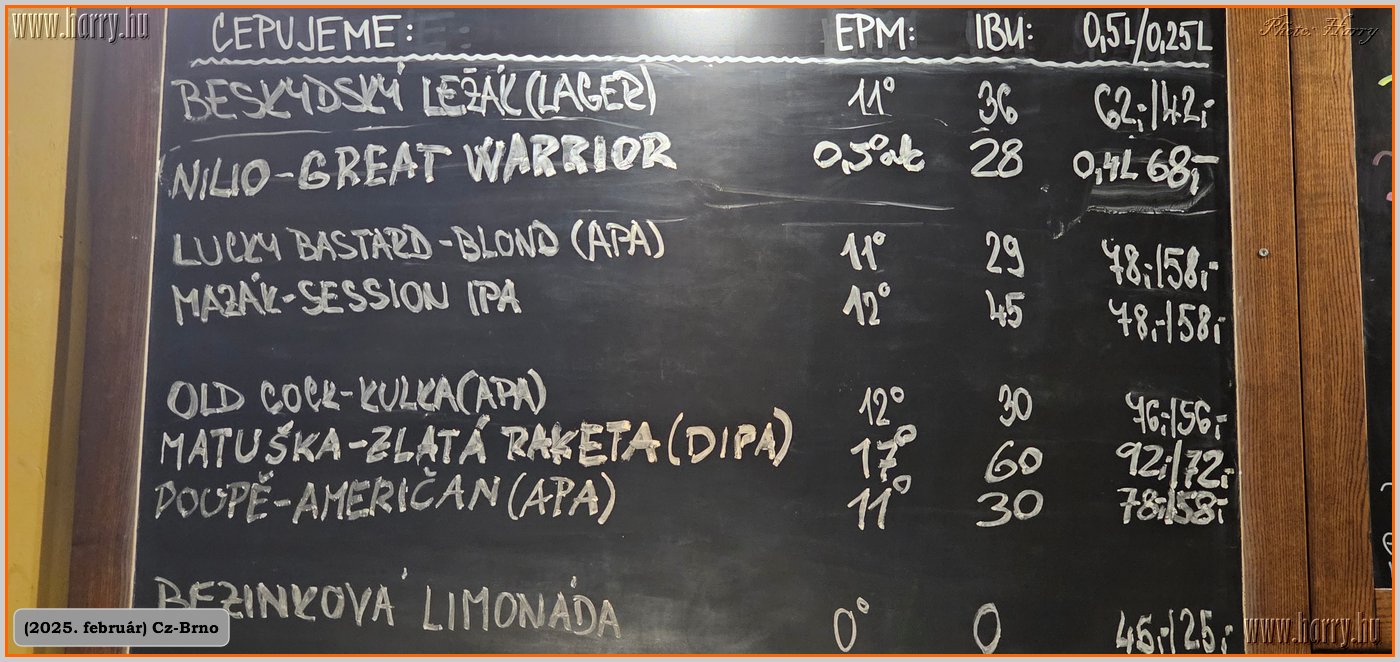 www.harry.hu
Photo: Harry
ČEPUJEME: EPM: IBU: 0,5L/0,25L
BESKYDSKÝ LEŽÁK (LAGER) 11° 36 62,-/42,-
NILIO-GREAT WARRIOR 0,5°alk 28 0,4L 68,-
LUCKY BASTARD-BLOND (APA) 11° 29 78,-/58,-
MAZÁK-SESSION IPA 12° 45 78,-/58,-
OLD COCK-KULKA (APA) 12° 30 76,-/56,-
MATUŠKA-ZLATÁ RAKETA (DIPA) 17° 60 92,-/72,-
POUPĚ-AMERIČAN (APA) 11° 30 78,-/58,-
BEZINKOVÁ LIMONÁDA 0° 0 46,-/25,-
(2025. február) Cz-Brno
www.harry.hu